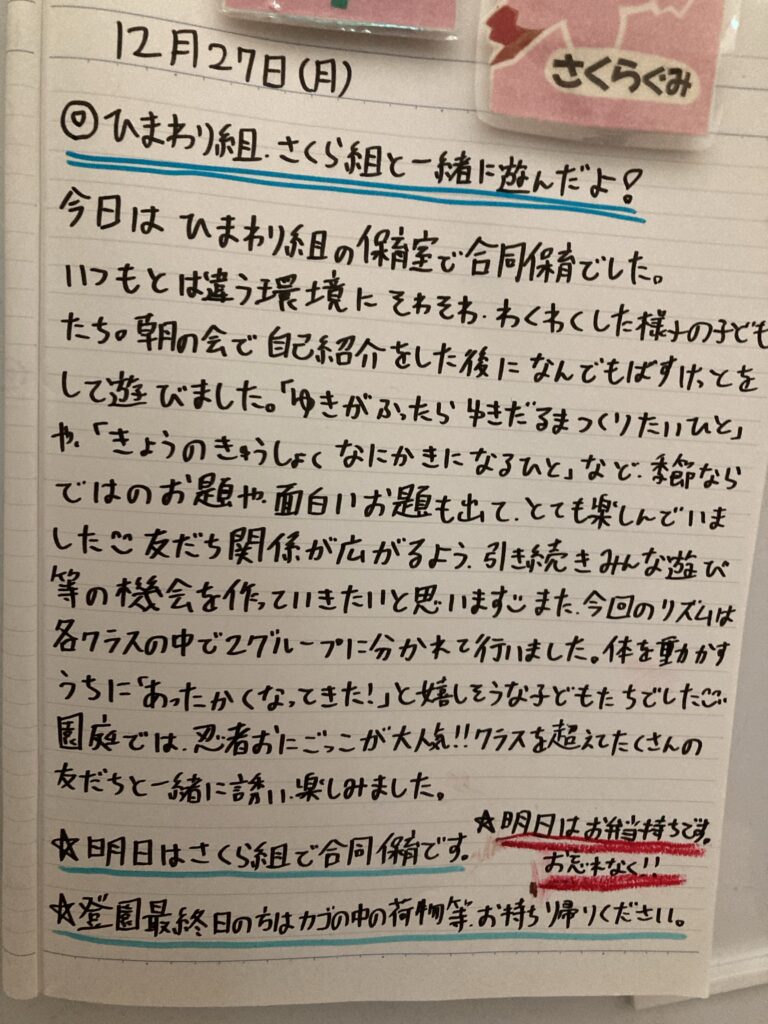 さくらぐみ
12月27日(月)
◎ひまわり組、さくら組と一緒に遊んだよ!
今日は ひまわり組の保育室で合同保育でした。
いつもとは違う環境に そわそわ・わくわくした様子の子ども
たち。朝の会で 自己紹介をした後に なんでもばすけっとを
して遊びました。「ゆきがふったら ゆきだるまつくりたいひと」
や、「きょうのきゅうしょく なにかきになるひと」など、季節なら
ではのお題や、面白いお題も出て、とても楽しんでいま
した 友だち関係が広がるよう、引き続きみんな遊び
等の機会を作っていきたいと思います また、今回のリズムは
各クラスの中で2グループに分かれて行いました。体を動かす
うちに「あったかくなってきた!」と嬉しそうな子どもたちでした
園庭では、忍者おにごっこが大人気!!クラスを超えてたくさんの
友だちと一緒に誘い、楽しみました。
☆明日はさくら組で合同保育です。
☆明日はお弁当持ちです。
お忘れなく!!
☆登園最終日の方はカゴの中の荷物等、お持ち帰りください。